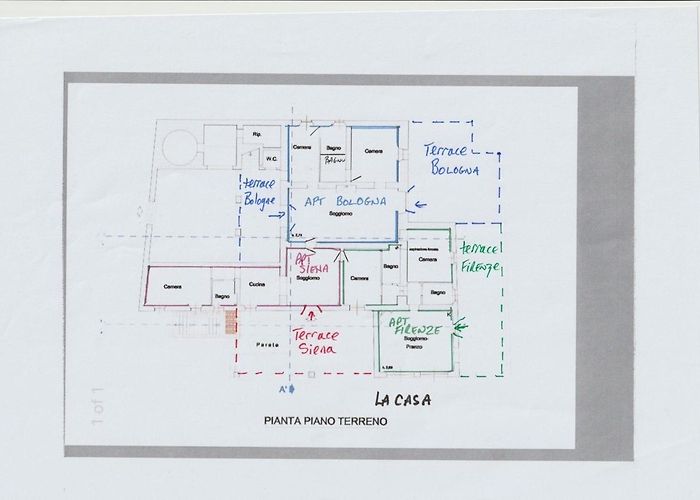 Rip.
W.C.
Camera
Bagno
BAGNO
Camera
Terrace
BOLOGNA
terrace
Bologne
APT BOLOGNA
Soggiorno
APT
SIENA
Soggiorno
Camera
Bagno
Cucina
Camera
Bagno
Camera
Bagno
terrace
FIRENZE
APT
FIRENZE
Soggiorno-
Pranzo
Terrace
Siena
A'
LA CASA
PIANTA PIANO TERRENO
1 of 1